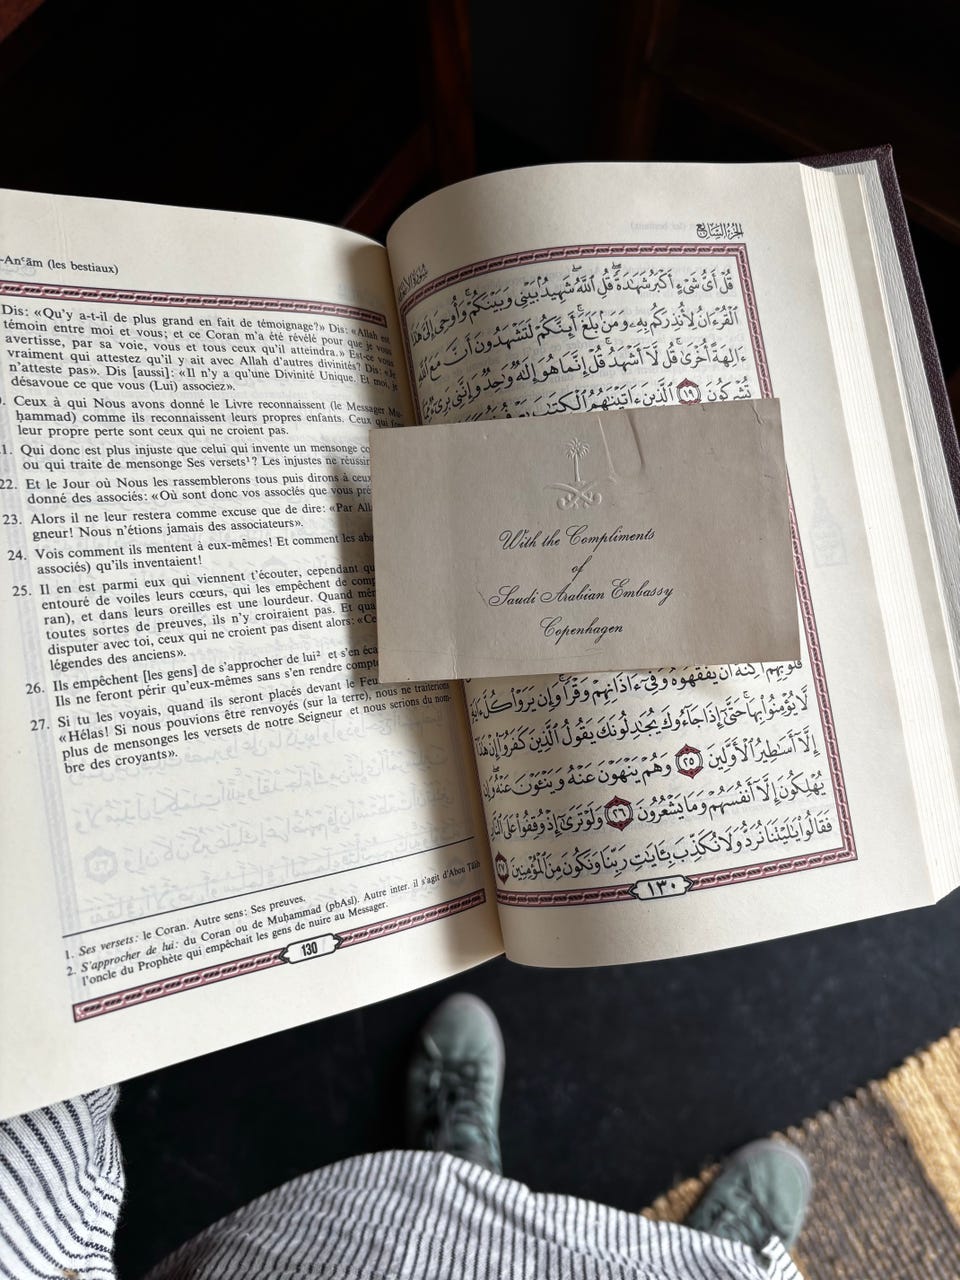 -Anʿām (les bestiaux)
Dis: «Qu'y a-t-il de plus grand en fait de témoignage?» Dis: «Allah est
témoin entre moi et vous; et ce Coran m'a été révélé pour que je vous
avertisse, par sa voie, vous et tous ceux qu'il atteindra.» Est-ce vous
vraiment qui attestez qu'il y ait avec Allah d'autres divinités? Dis: «Je
n'atteste pas». Dis [aussi]: «Il n'y a qu'une Divinité Unique. Et moi, je
désavoue ce que vous (Lui) associez».
Ceux à qui Nous avons donné le Livre reconnaissent (le Messager Mu-
ḥammad) comme ils reconnaissent leurs propres enfants. Ceux qui font
leur propre perte sont ceux qui ne croient pas.
1. Qui donc est plus injuste que celui qui invente un mensonge
ou qui traite de mensonge Ses versets¹? Les injustes ne
22. Et le Jour où Nous les rassemblerons tous puis dirons à ceux
donné des associés: «Où sont donc vos associés que vous
23. Alors il ne leur restera comme excuse que de dire: «Par
gneur! Nous n'étions jamais des associateurs».
24. Vois comment ils mentent à eux-mêmes! Et comment les
associés) qu'ils inventaient!
25. Il en est parmi eux qui viennent t'écouter, cependant
entouré de voiles leurs cœurs, qui les empêchent de
ran), et dans leurs oreilles est une lourdeur. Quand
toutes sortes de preuves, ils n'y croiraient pas. Et
disputer avec toi, ceux qui ne croient pas disent alors:
légendes des anciens».
26. Ils empêchent [les gens] de s'approcher de lui² et s'en
Ils ne feront périr qu'eux-mêmes sans s'en rendre
27. Si tu les voyais, quand ils seront placés devant le Feu
«Hélas! Si nous pouvions être renvoyés (sur la terre), nous ne traiterions
plus de mensonges les versets de notre Seigneur et nous serions du nom-
bre des croyants».
1. Ses versets: le Coran. Autre sens: Ses preuves.
2. S'approcher de lui: du Coran ou de Muḥammad (pbAsl). Autre inter. il s'agit d'Abou Tālib
l'oncle du Prophète qui empêchait les gens de nuire au Messager.
130
الجزء السابع
قُلْ أَىُّ شَىْءٍ أَكْبَرُ شَهَٰدَةً ۖ قُلِ ٱللَّهُ ۖ شَهِيدٌۢ بَيْنِى وَبَيْنَكُمْ ۚ وَأُوحِىَ إِلَىَّ هَٰذَا
ٱلْقُرْءَانُ لِأُنذِرَكُم بِهِۦ وَمَنۢ بَلَغَ ۚ أَئِنَّكُمْ لَتَشْهَدُونَ أَنَّ مَعَ ٱللَّهِ
ءَالِهَةً أُخْرَىٰ ۚ قُل لَّآ أَشْهَدُ ۚ قُلْ إِنَّمَا هُوَ إِلَٰهٌ وَٰحِدٌ وَإِنَّنِى بَرِىٓءٌ مِّمَّا
تُشْرِكُونَ ١٩ ٱلَّذِينَ ءَاتَيْنَٰهُمُ ٱلْكِتَٰبَ
With the Compliments
of
Saudi Arabian Embassy
Copenhagen
قُلُوبِهِمْ أَكِنَّةً أَن يَفْقَهُوهُ وَفِىٓ ءَاذَانِهِمْ وَقْرًا ۚ وَإِن يَرَوْا۟ كُلَّ ءَايَةٍ
لَّا يُؤْمِنُوا۟ بِهَا ۚ حَتَّىٰٓ إِذَا جَآءُوكَ يُجَٰدِلُونَكَ يَقُولُ ٱلَّذِينَ كَفَرُوٓا۟ إِنْ هَٰذَآ
إِلَّآ أَسَٰطِيرُ ٱلْأَوَّلِينَ ٢٥ وَهُمْ يَنْهَوْنَ عَنْهُ وَيَنْـَٔوْنَ عَنْهُ ۖ وَإِن
يُهْلِكُونَ إِلَّآ أَنفُسَهُمْ وَمَا يَشْعُرُونَ ٢٦ وَلَوْ تَرَىٰٓ إِذْ وُقِفُوا۟ عَلَى ٱلنَّارِ
فَقَالُوا۟ يَٰلَيْتَنَا نُرَدُّ وَلَا نُكَذِّبَ بِـَٔايَٰتِ رَبِّنَا وَنَكُونَ مِنَ ٱلْمُؤْمِنِينَ ٢٧
١٣٠